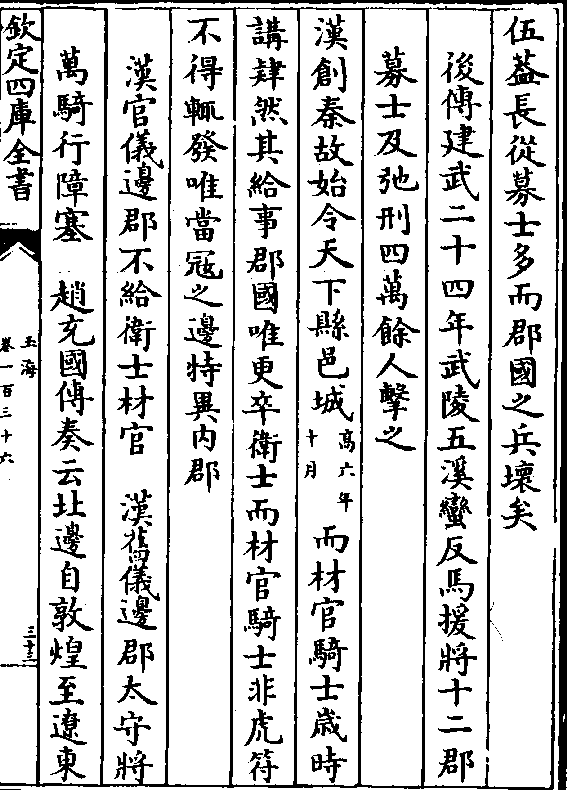 伍葢長從募士多而郡國之兵壞矣
後傳建武二十四年武陵五溪蠻反馬援將十二郡
募士及弛刑四萬餘人擊之
漢創秦故始令天下縣邑城高六年十月而材官騎士歲時
講肄然其給事郡國唯更卒衛士而材官騎士非虎符
不得輒發唯當冦之邊特異内郡
漢官儀邊郡不給衛士材官　漢舊儀邊郡太守將
萬騎行障塞　趙充國傳奏云北邊自敦煌至遼東
欽定四庫全書
玉海
卷一百三十六
三十三